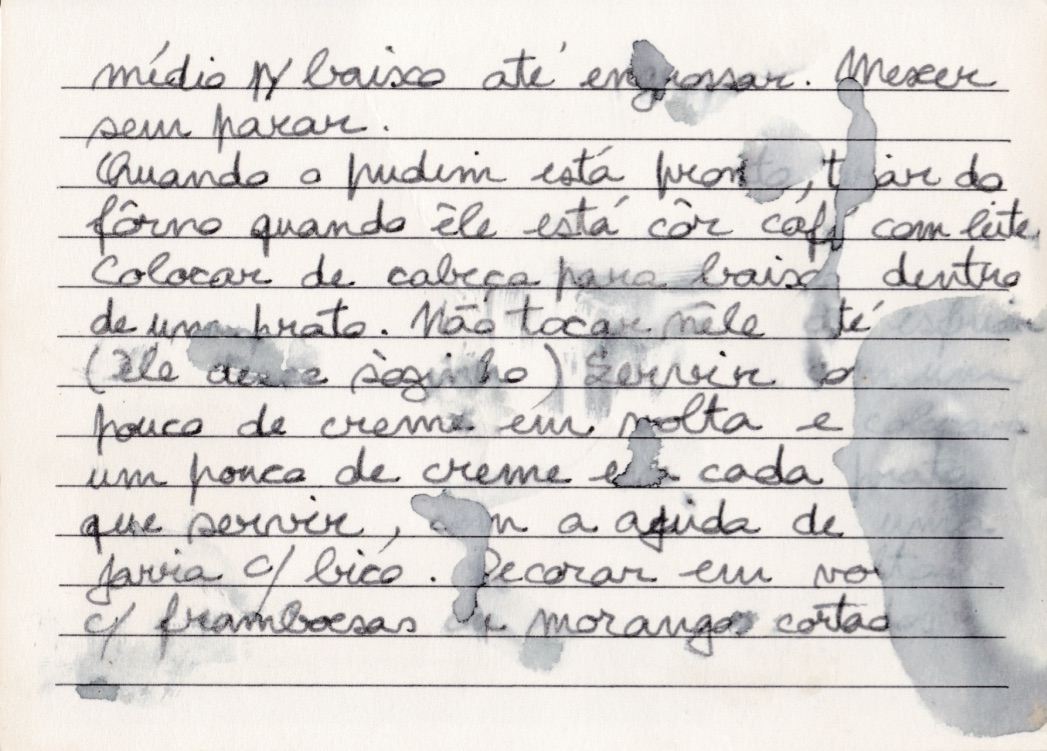 médio p/ baixo até engrossar. Mexer
sem parar.
Quando o pudim está pronto, tirar do
fôrno quando êle está côr café com leite.
Colocar de cabeça para baixo dentro
de um prato. Não tocar nêle até esfriar
(êle desce sòzinho) Servir
pouco de creme em volta e colocar
um pouco de creme em cada prato
que servir, com a ajuda de uma
jarra c/ bico. Decorar em volta
c/ framboesas ou morangos cortados